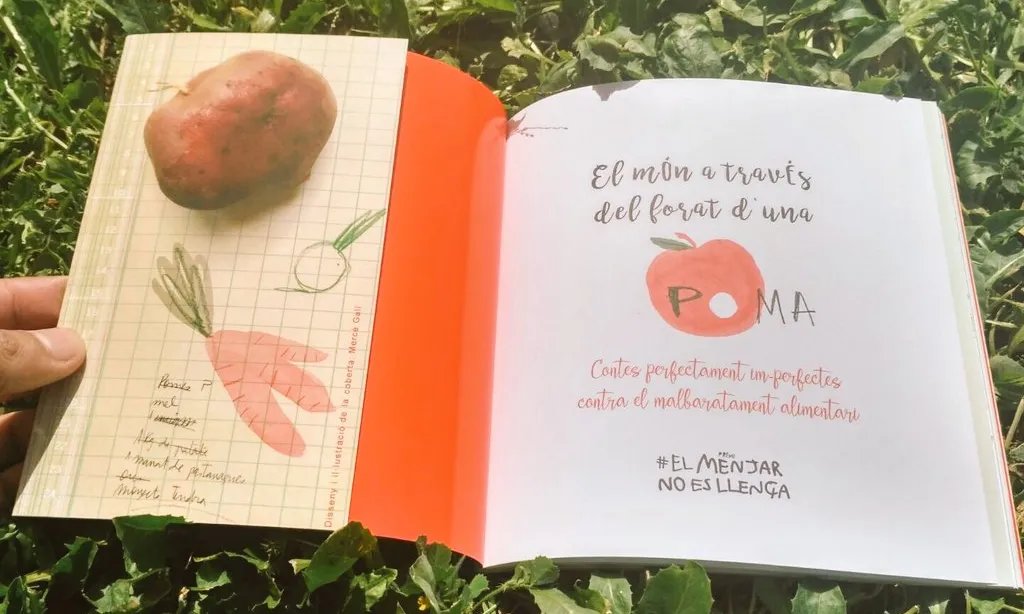 mel
manat de pastanagues
Tendra
Disseny i il·lustració de la coberta: Mercè Galí
El món a través
del forat d'una
POMA
Contes perfectament im-perfectes
contra el malbaratament alimentari
PREMI
#EL MENJAR
NO ES LLENÇA